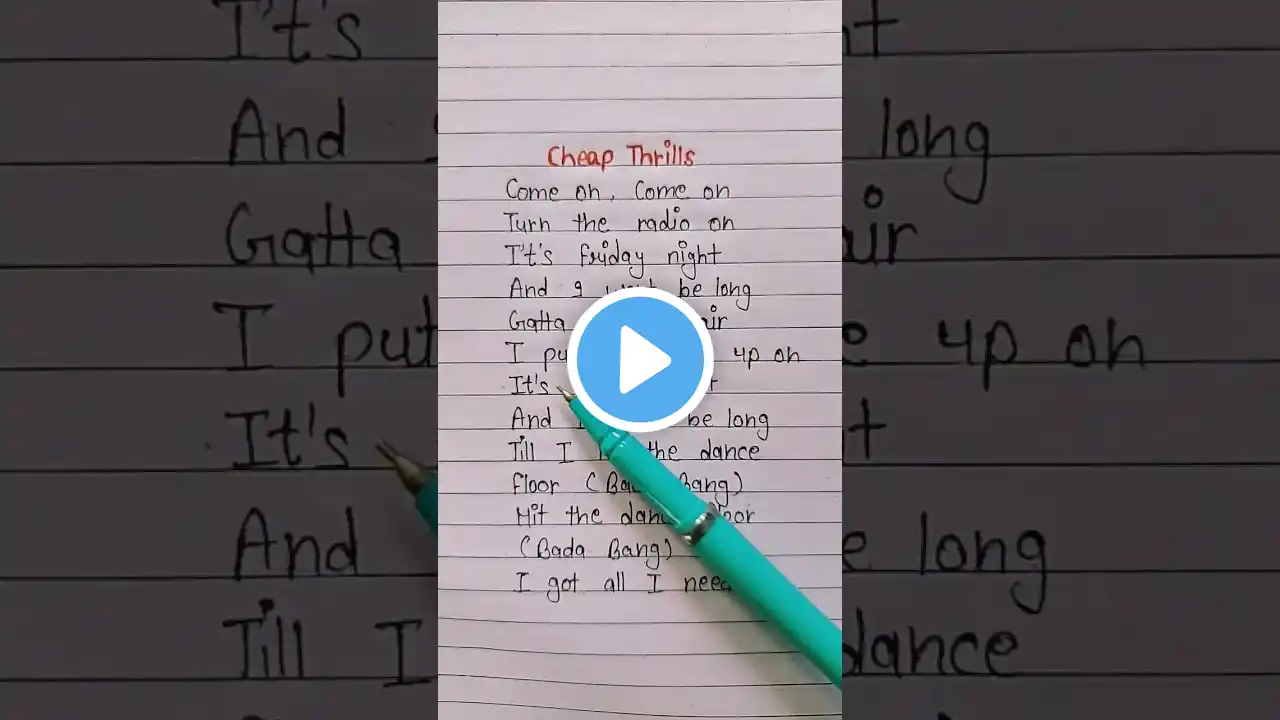 Cheap Thrills
Come on, Come on
Turn the radio on
It's friday night
And I be long
Gatta
I up on
It's
And be long
Till I the dance
floor (Bang)
Hit the
(Bada Bang)
I got all I need